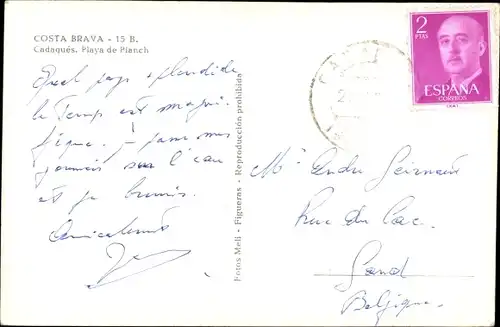 COSTA BRAVA - 15 B.
Cadaqués. Playa de Planch
Quel pays splendide
le Temps est magni-
fique. je passe mes
sur l'eau
et je brunis.
Amicalement
Fotos Meli - Figueras - Reproducción prohibida
2
PTAS
ESPAÑA
CORREOS
Mr André
Rue du Lac.
Gand
Belgique.